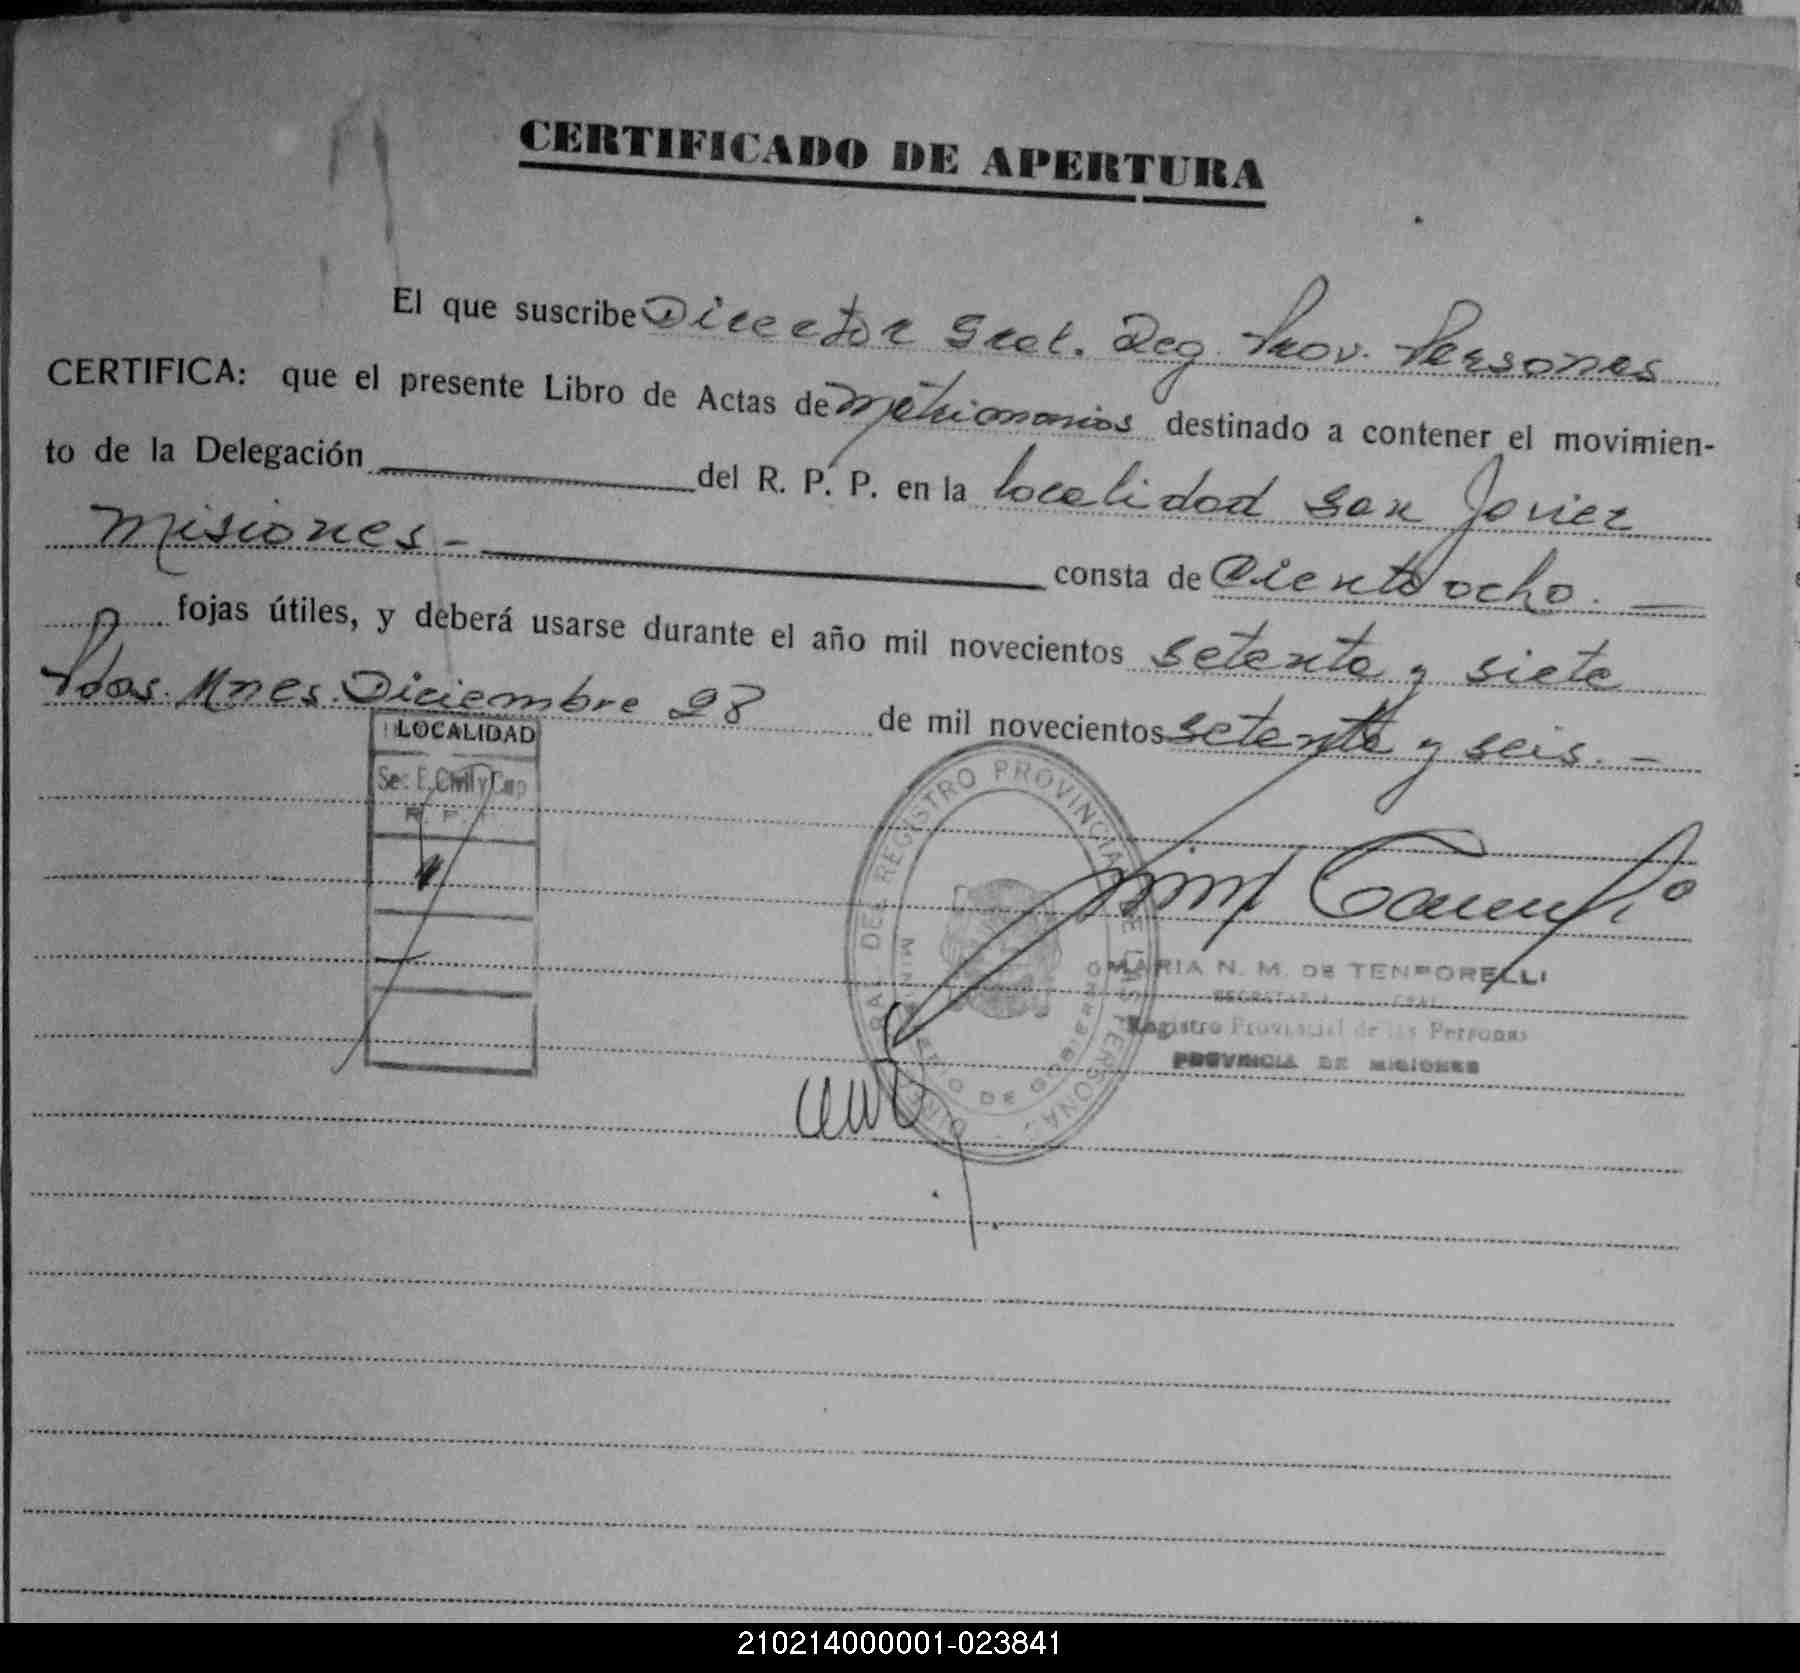 CERTIFICADO DE APERTURA
El que suscribe Director Gral. Reg. Prov. Personas
CERTIFICA: que el presente Libro de Actas de Matrimonios destinado a contener el movimien-
to de la Delegación del R. P. P. en la localidad San Javier
Misiones - consta de Ciento ocho. —
fojas útiles, y deberá usarse durante el año mil novecientos setenta y siete
Pdas. Mnes. Diciembre 28 de mil novecientos setenta y seis. —
LOCALIDAD
Sec. E. Civil y Cap
R. P.
DEL REGISTRO PROVINCIAL DE LAS PERSONAS
MINISTERIO DE GOBIERNO
MARIA N. M. DE TEMPORELLI
Registro Provincial de las Personas
PROVINCIA DE MISIONES
210214000001-023841